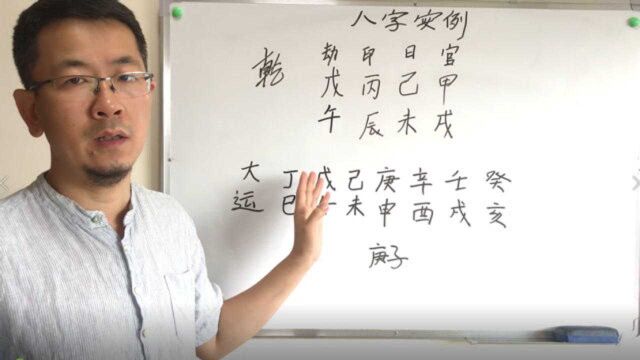 八字实例
乾 劫 印 日 官
戊 丙 己 甲
午 辰 未 戌
大 丁 戊 己 庚 辛 壬 癸
运 巳 未 申 酉 戌 亥
庚子